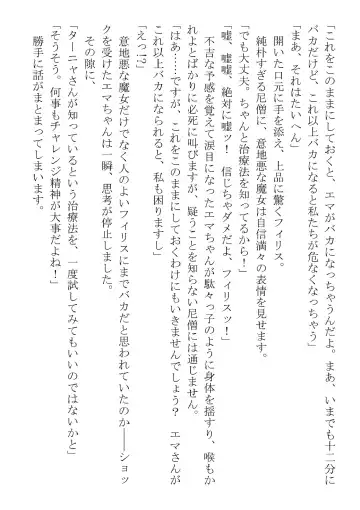 「これをこのままにしておくと、エマがバカになっちゃうんだよ。まあ、いまでも十二分に
バカだけど、これ以上バカになると私たちが危なくなっちゃう」
「まあ、それはたいへん」
開いた口元に手を添え、上品に驚くフィリス。
純朴すぎる尼僧に、意地悪な魔女は自信満々の表情を見せます。
「でも大丈夫。ちゃんと治療法を知ってるから！」
「嘘、嘘嘘、絶対に嘘ッ！　信じちゃダメだよ、フィリスッ！」
不吉な予感を覚えて涙目になったエマちゃんが駄々っ子のように身体を揺すり、喉もか
れよとばかりに必死に叫びますが、疑うことを知らない尼僧には通じません。
「はあ……ですが、これをこのままにしておくわけにもいきませんでしょう？　エマさんが
これ以上バカになられると、私も困りますし」
「えっ!?」
意地悪な魔女だけでなく人のよいフィリスにまでバカだと思われていたのか――ショッ
クを受けたエマちゃんは一瞬、思考が停止しました。
その隙に、
「ターニャさんが知っているという治療法を、一度試してみてもいいのではないかと」
「そうそう。何事もチャレンジ精神が大事だよね！」
勝手に話がまとまってしまいます。